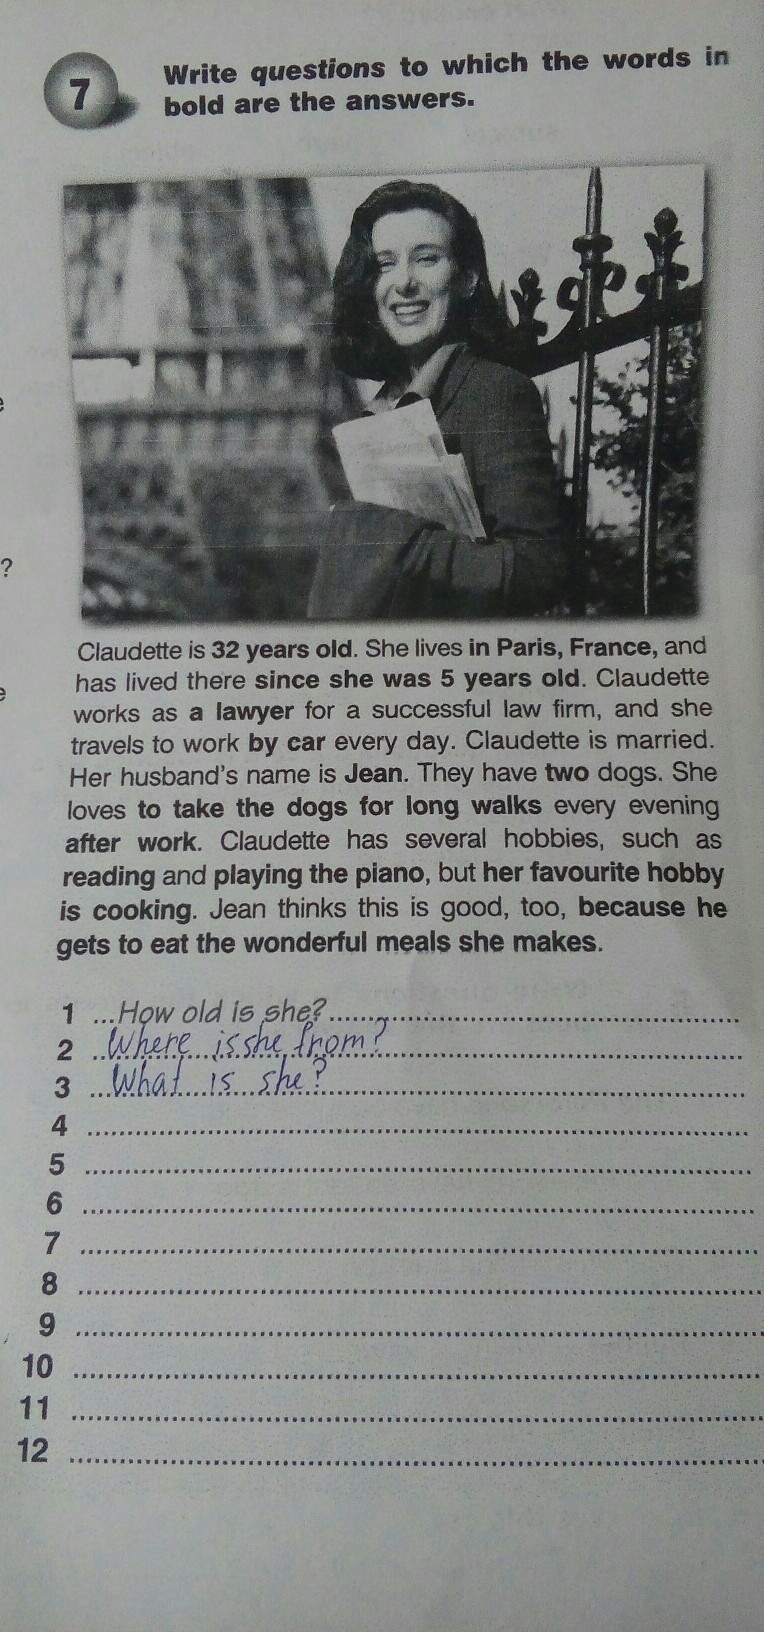 7
Write questions to which the words in
bold are the answers.
e
?
e
Claudette is 32 years old. She lives in Paris, France, and
has lived there since she was 5 years old. Claudette
works as a lawyer for a successful law firm, and she
travels to work by car every day. Claudette is married.
Her husband's name is Jean. They have two dogs. She
loves to take the dogs for long walks every evening
after work. Claudette has several hobbies, such as
reading and playing the piano, but her favourite hobby
is cooking. Jean thinks this is good, too, because he
gets to eat the wonderful meals she makes.
1 ...How old is she?...
2 ...Where is she from?...
3 ...What is she?...
4
5
6
7
8
9
10
11
12